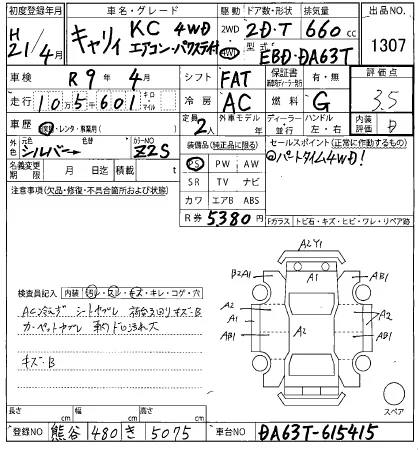 初度登録年月 車名・グレード 駆動 ドア数・形状 排気量 出品NO
H 21/4月 キャリィ KC 4WD エアコン・パワステ付 2WD 4WD 2D・T 660cc 1307
型式 EBD-DA63T
車検 R9年4月 シフト FAT 保証書 有・無 評価点
走行 105601 キロ マイル 冷房 AC 燃料 G 3.5
車歴 自家・レンタ・事業用( ) 定員 2人 外車モデル 年 ディーラー 並行 ハンドル 左・右 内装評価 D
外色 元色 シルバー→ 色替 カラーNO Z2S 装備品(純正品に限る) セールスポイント(正常に作動するもの)
名義変更期限 月 日迄 積載 t PS PW AW ◎パートタイム4WD!
SR TV ナビ
注意事項(欠品・修復・不具合箇所および状態) カワ エアB ABS
R券 5380円
Fガラス トビ石・キズ・ヒビ・ワレ・リペア跡
A2Y1
B2A1 A1 AB1
検査員記入 内装 汚レ・スレ・キズ・キレ・コゲ・穴
A2 A2
AC冷えず シートヤブレ 荷台3回りキズ・B A1 A2
カーペットヤブレ 車の下回り汚れ大 AB1 A2 AB1
キズ・B
スペア
長さ cm 幅 cm 高さ cm
登録NO 熊谷 480 き 5075 車台NO DA63T-615415